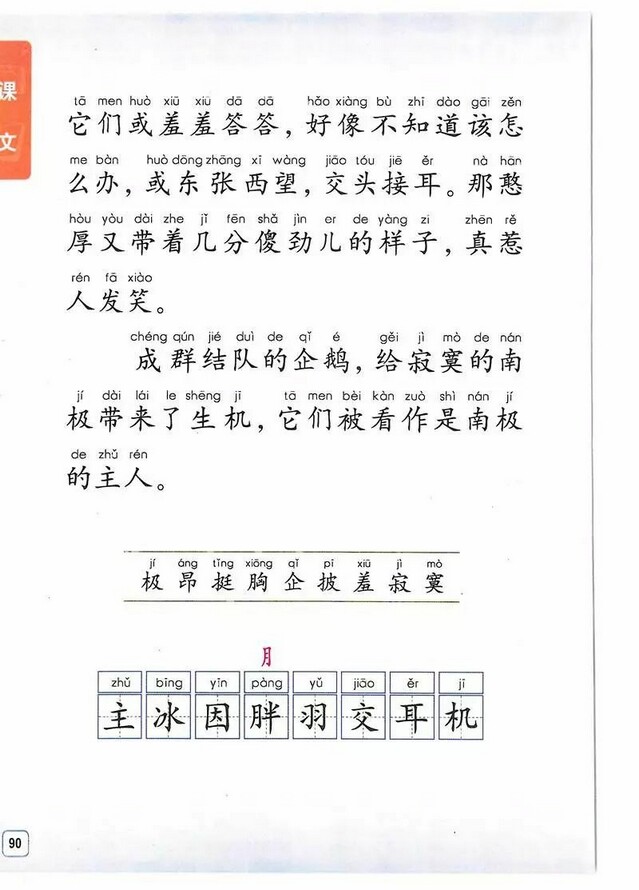 课
文
tā men huò xiū xiū dā dā hǎo xiàng bù zhī dào gāi zěn
它们或羞羞答答，好像不知道该怎
me bàn huò dōng zhāng xī wàng jiāo tóu jiē ěr nà hān
么办，或东张西望，交头接耳。那憨
hòu yòu dài zhe jǐ fēn shǎ jìn er de yàng zi zhēn rě
厚又带着几分傻劲儿的样子，真惹
rén fā xiào
人发笑。
chéng qún jié duì de qǐ é gěi jì mò de nán
成群结队的企鹅，给寂寞的南
jí dài lái le shēng jī tā men bèi kàn zuò shì nán jí
极带来了生机，它们被看作是南极
de zhǔ rén
的主人。
jí áng tǐng xiōng qǐ pī xiū jì mò
极 昂 挺 胸 企 披 羞 寂 寞
月
zhǔ bīng yīn pàng yǔ jiāo ěr jī
主 冰 因 胖 羽 交 耳 机
90